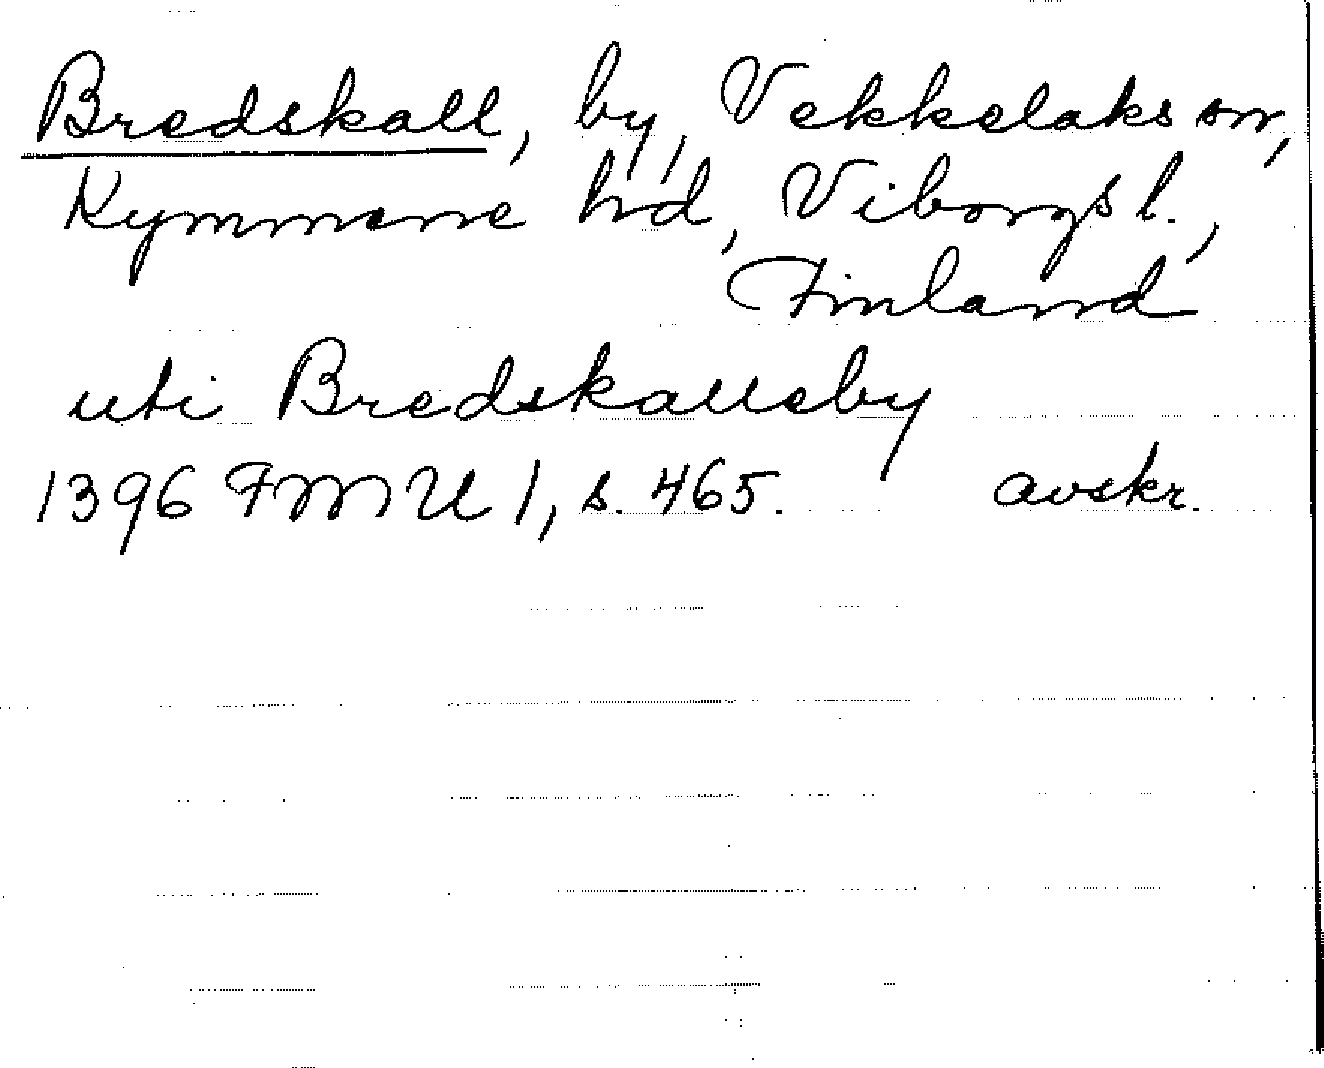 Bredskall, by, Vekkelaks sn,
Kymmene hd, Viborgs l.,
Finland
uti Bredskalleby
1396 FMU 1, s. 465. avskr.